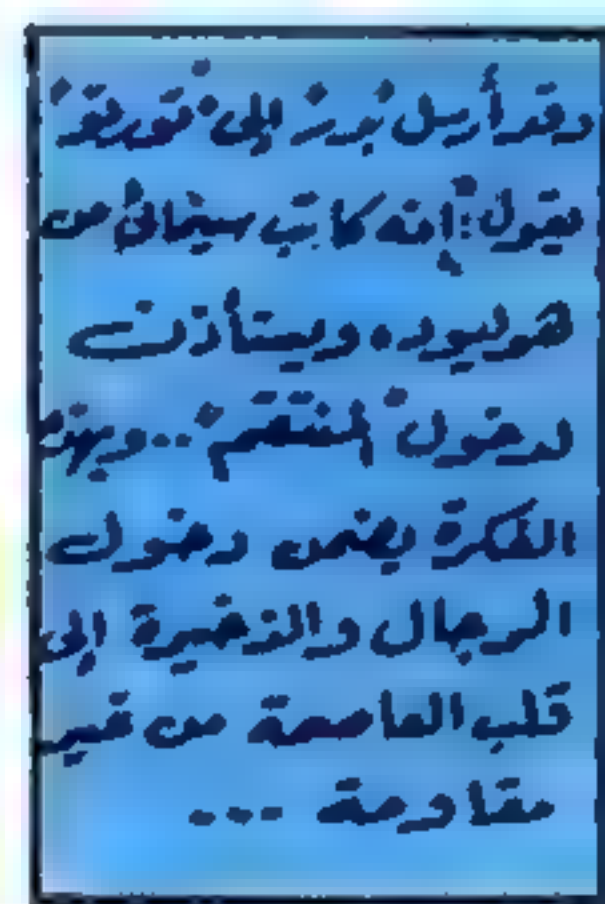 وقد أرسل "بدر" إلى "قورتقو"
يقول: إنه كاتب سينمائى من
هوليوده ويستأذن
لدخول "المنتقم".. وبهذه
الفكرة يضمن دخول
الرجال والذخيرة إلى
قلب العاصمة من غير
مقاومة ...